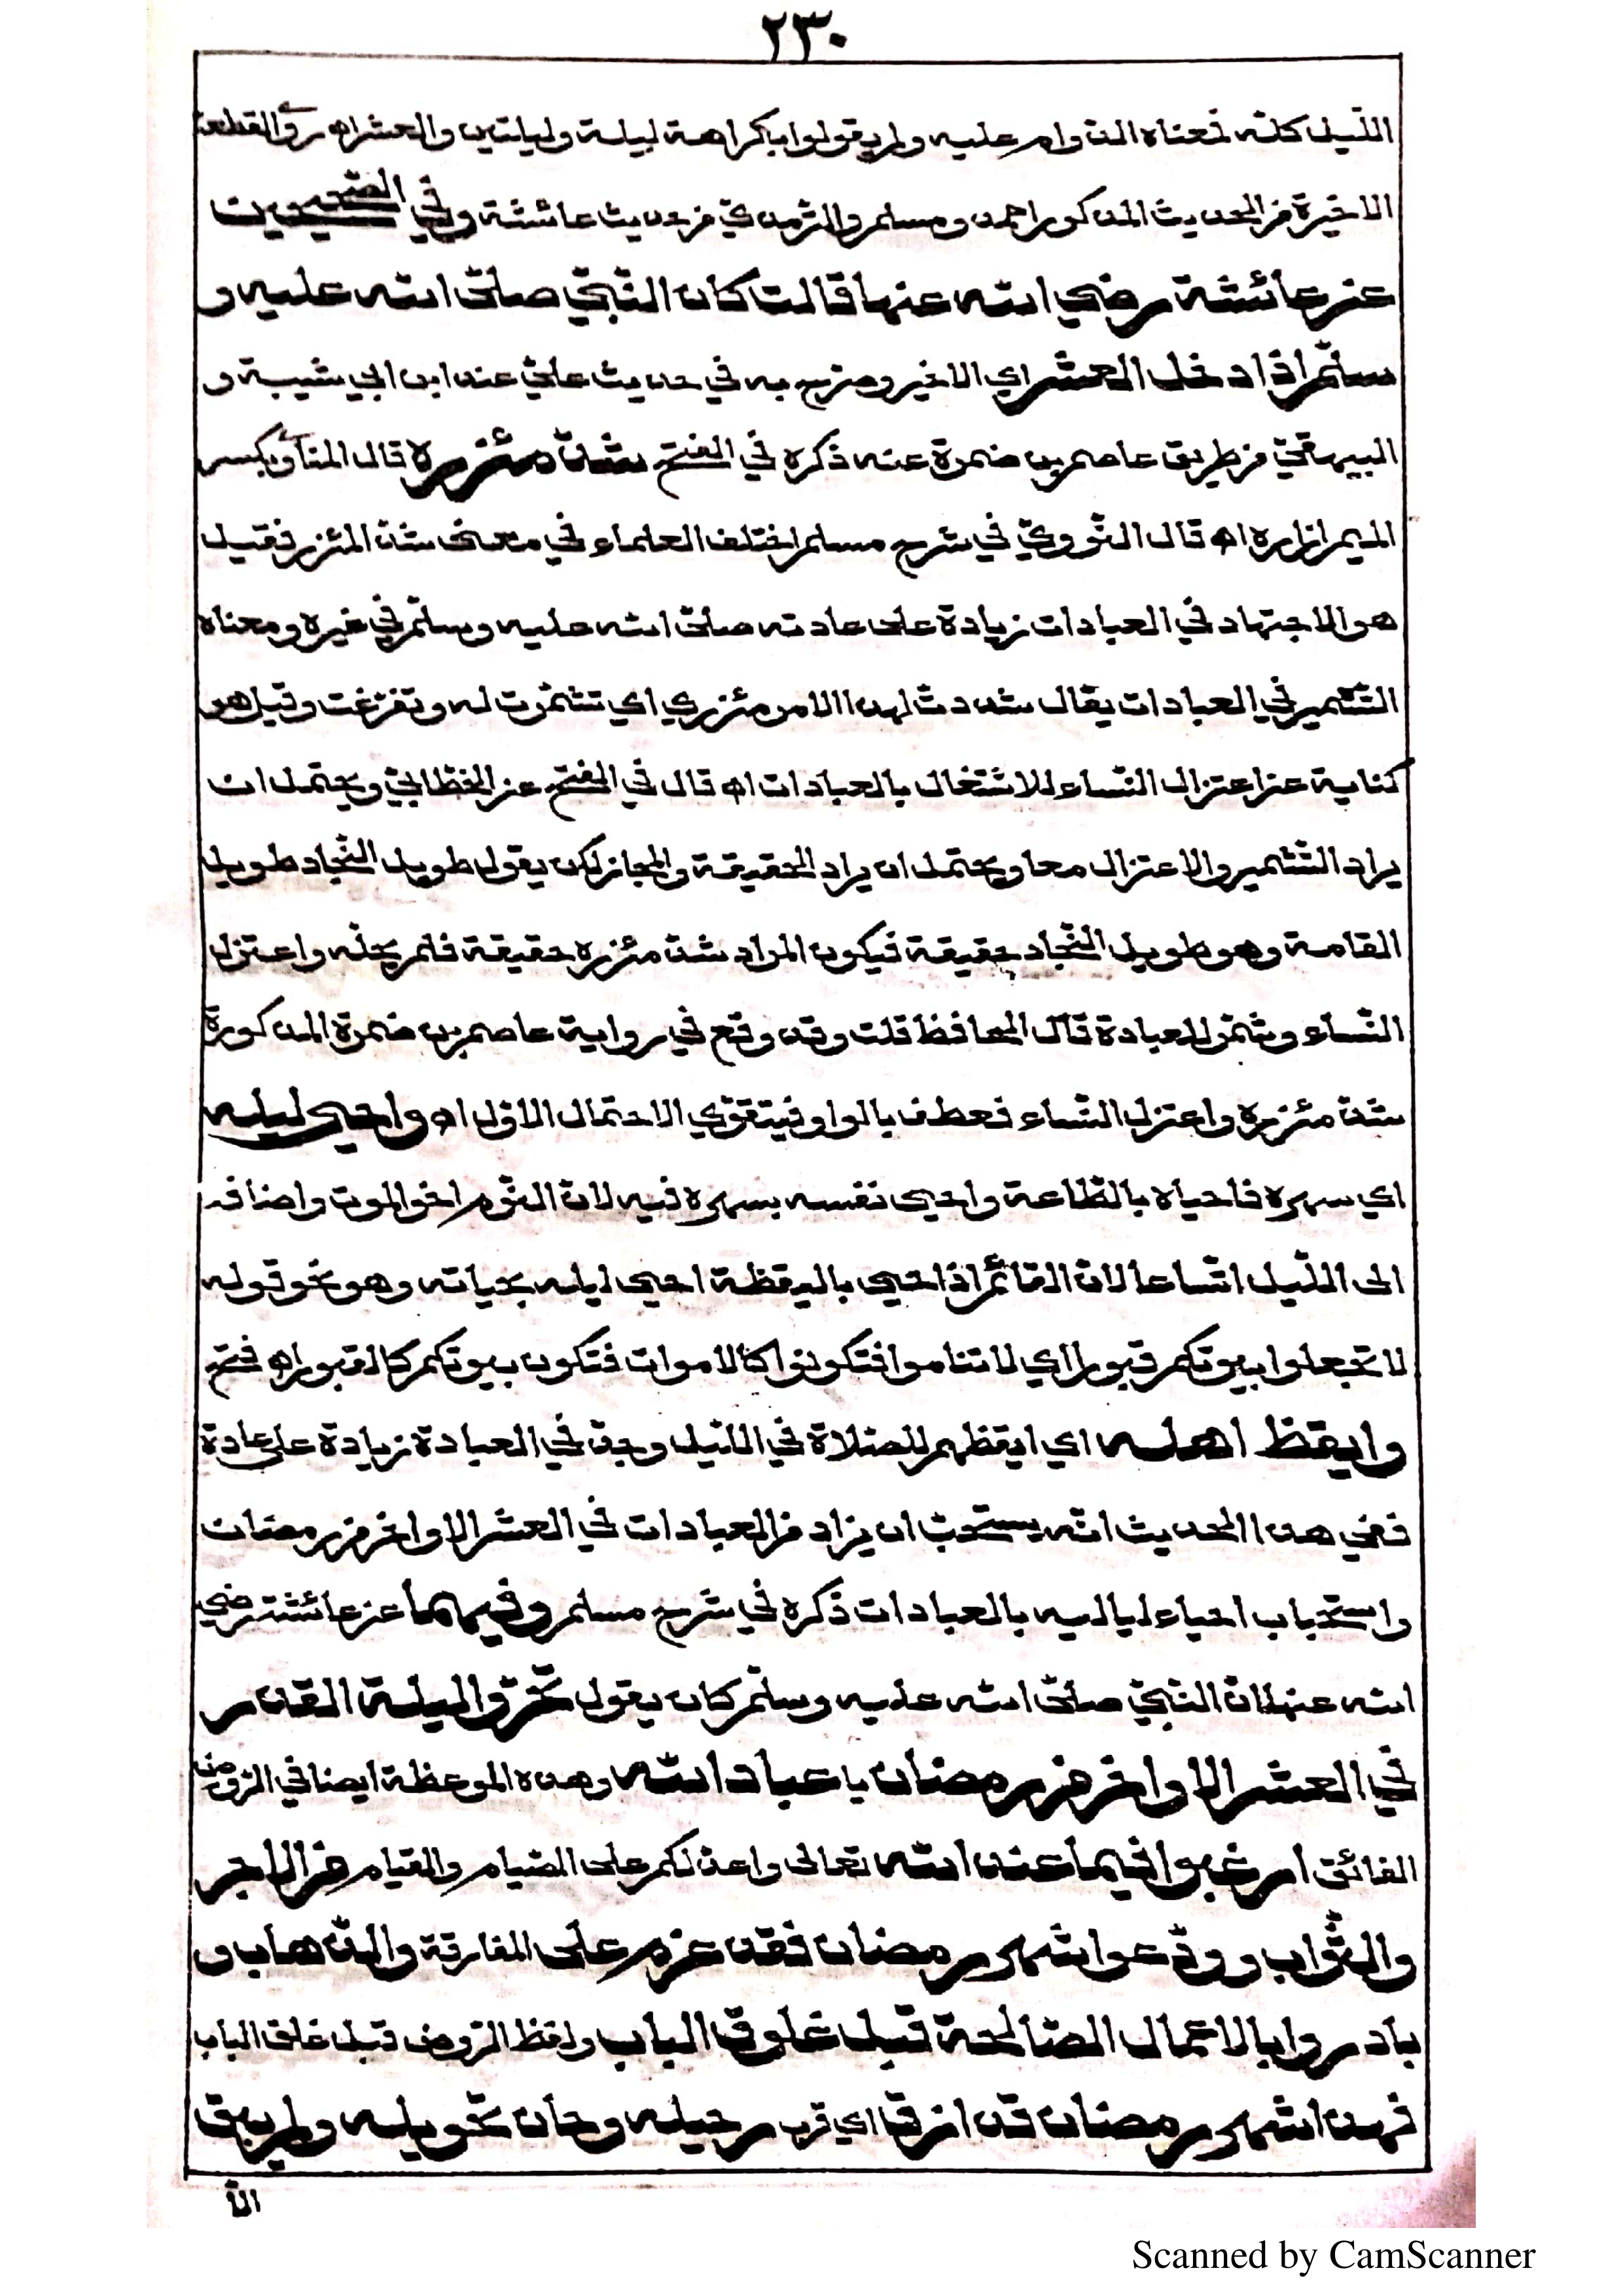 ٢٣٠
الليل كله فمعناه الدوام عليه ولم يقولوا بكراهة ليلة وليلتين والعشر اه روى القطعة
الاخيرة من الحديث المذكور احمد ومسلم والترمذي من حديث عائشة وفي الصحيحين
عن عائشة رضي الله عنها قالت كان النبي صلى الله عليه و
سلم اذا دخل العشر اي الاخير وصرح به في حديث علي عند ابن ابي شيبة و
البيهقي من طريق عاصم بن ضمرة عنه ذكره في الفتح شد مئزره قال المناوي بكسر
الميم ازاره اه قال النووي في شرح مسلم اختلف العلماء في معنى شد المئزر فقيل
هو الاجتهاد في العبادات زيادة على عادته صلى الله عليه وسلم في غيره ومعناه
التشمير في العبادات يقال شددت لهذا الامر مئزري اي تشمرت له وتفرغت وقيل هو
كناية عن اعتزال النساء للاشتغال بالعبادات اه قال في الفتح عن الخطابي ويحتمل ان
يراد التشمير والاعتزال معا ويحتمل ان يراد الحقيقة والمجاز كمن يقول طويل النجاد طويل
القامة وهو طويل النجاد حقيقة فيكون المراد شد مئزره حقيقة فلم يحله واعتزل
النساء وشمر للعبادة قال الحافظ قلت وقد وقع في رواية عاصم بن ضمرة المذكورة
شد مئزره واعتزل النساء فعطف بالواو فيتقوي الاحتمال الاول اه واحيى ليله
اي سهره فاحياه بالطاعة واحيى نفسه بسهره فيه لان النوم اخو الموت واضافه
الى الليل اتساعا لان القائم اذا حيي باليقظة احيى ليله بحياته وهو نحو قوله
لا تجعلوا بيوتكم قبورا اي لا تناموا فتكونوا كالاموات فتكون بيوتكم كالقبور اه فتح
وايقظ اهله اي ايقظهم للصلاة في الليل وجد في العبادة زيادة على عادة
ففي هذا الحديث انه يستحب ان يزاد من العبادات في العشر الاواخر من رمضان
واستحباب احياء لياليه بالعبادات ذكره في شرح مسلم وفيهما عن عائشة رضي
الله عنها ان النبي صلى الله عليه وسلم كان يقول تحروا ليلة القدر
في العشر الاواخر من رمضان يا عباد الله وهذه الموعظة ايضا في الروض
الفائق ارغبوا فيما عند الله تعالى واعد لكم على الصيام والقيام من الاجر
والثواب وودعوا شهر رمضان فقد عزم على المفارقة والذهاب و
بادروا بالاعمال الصالحة قبل غلوق الباب ولفظ الروض قبل غلق الباب
فهذا شهر رمضان قد ازف اي قرب رحيله وحان تحويله ولم يبق
الا
Scanned by CamScanner